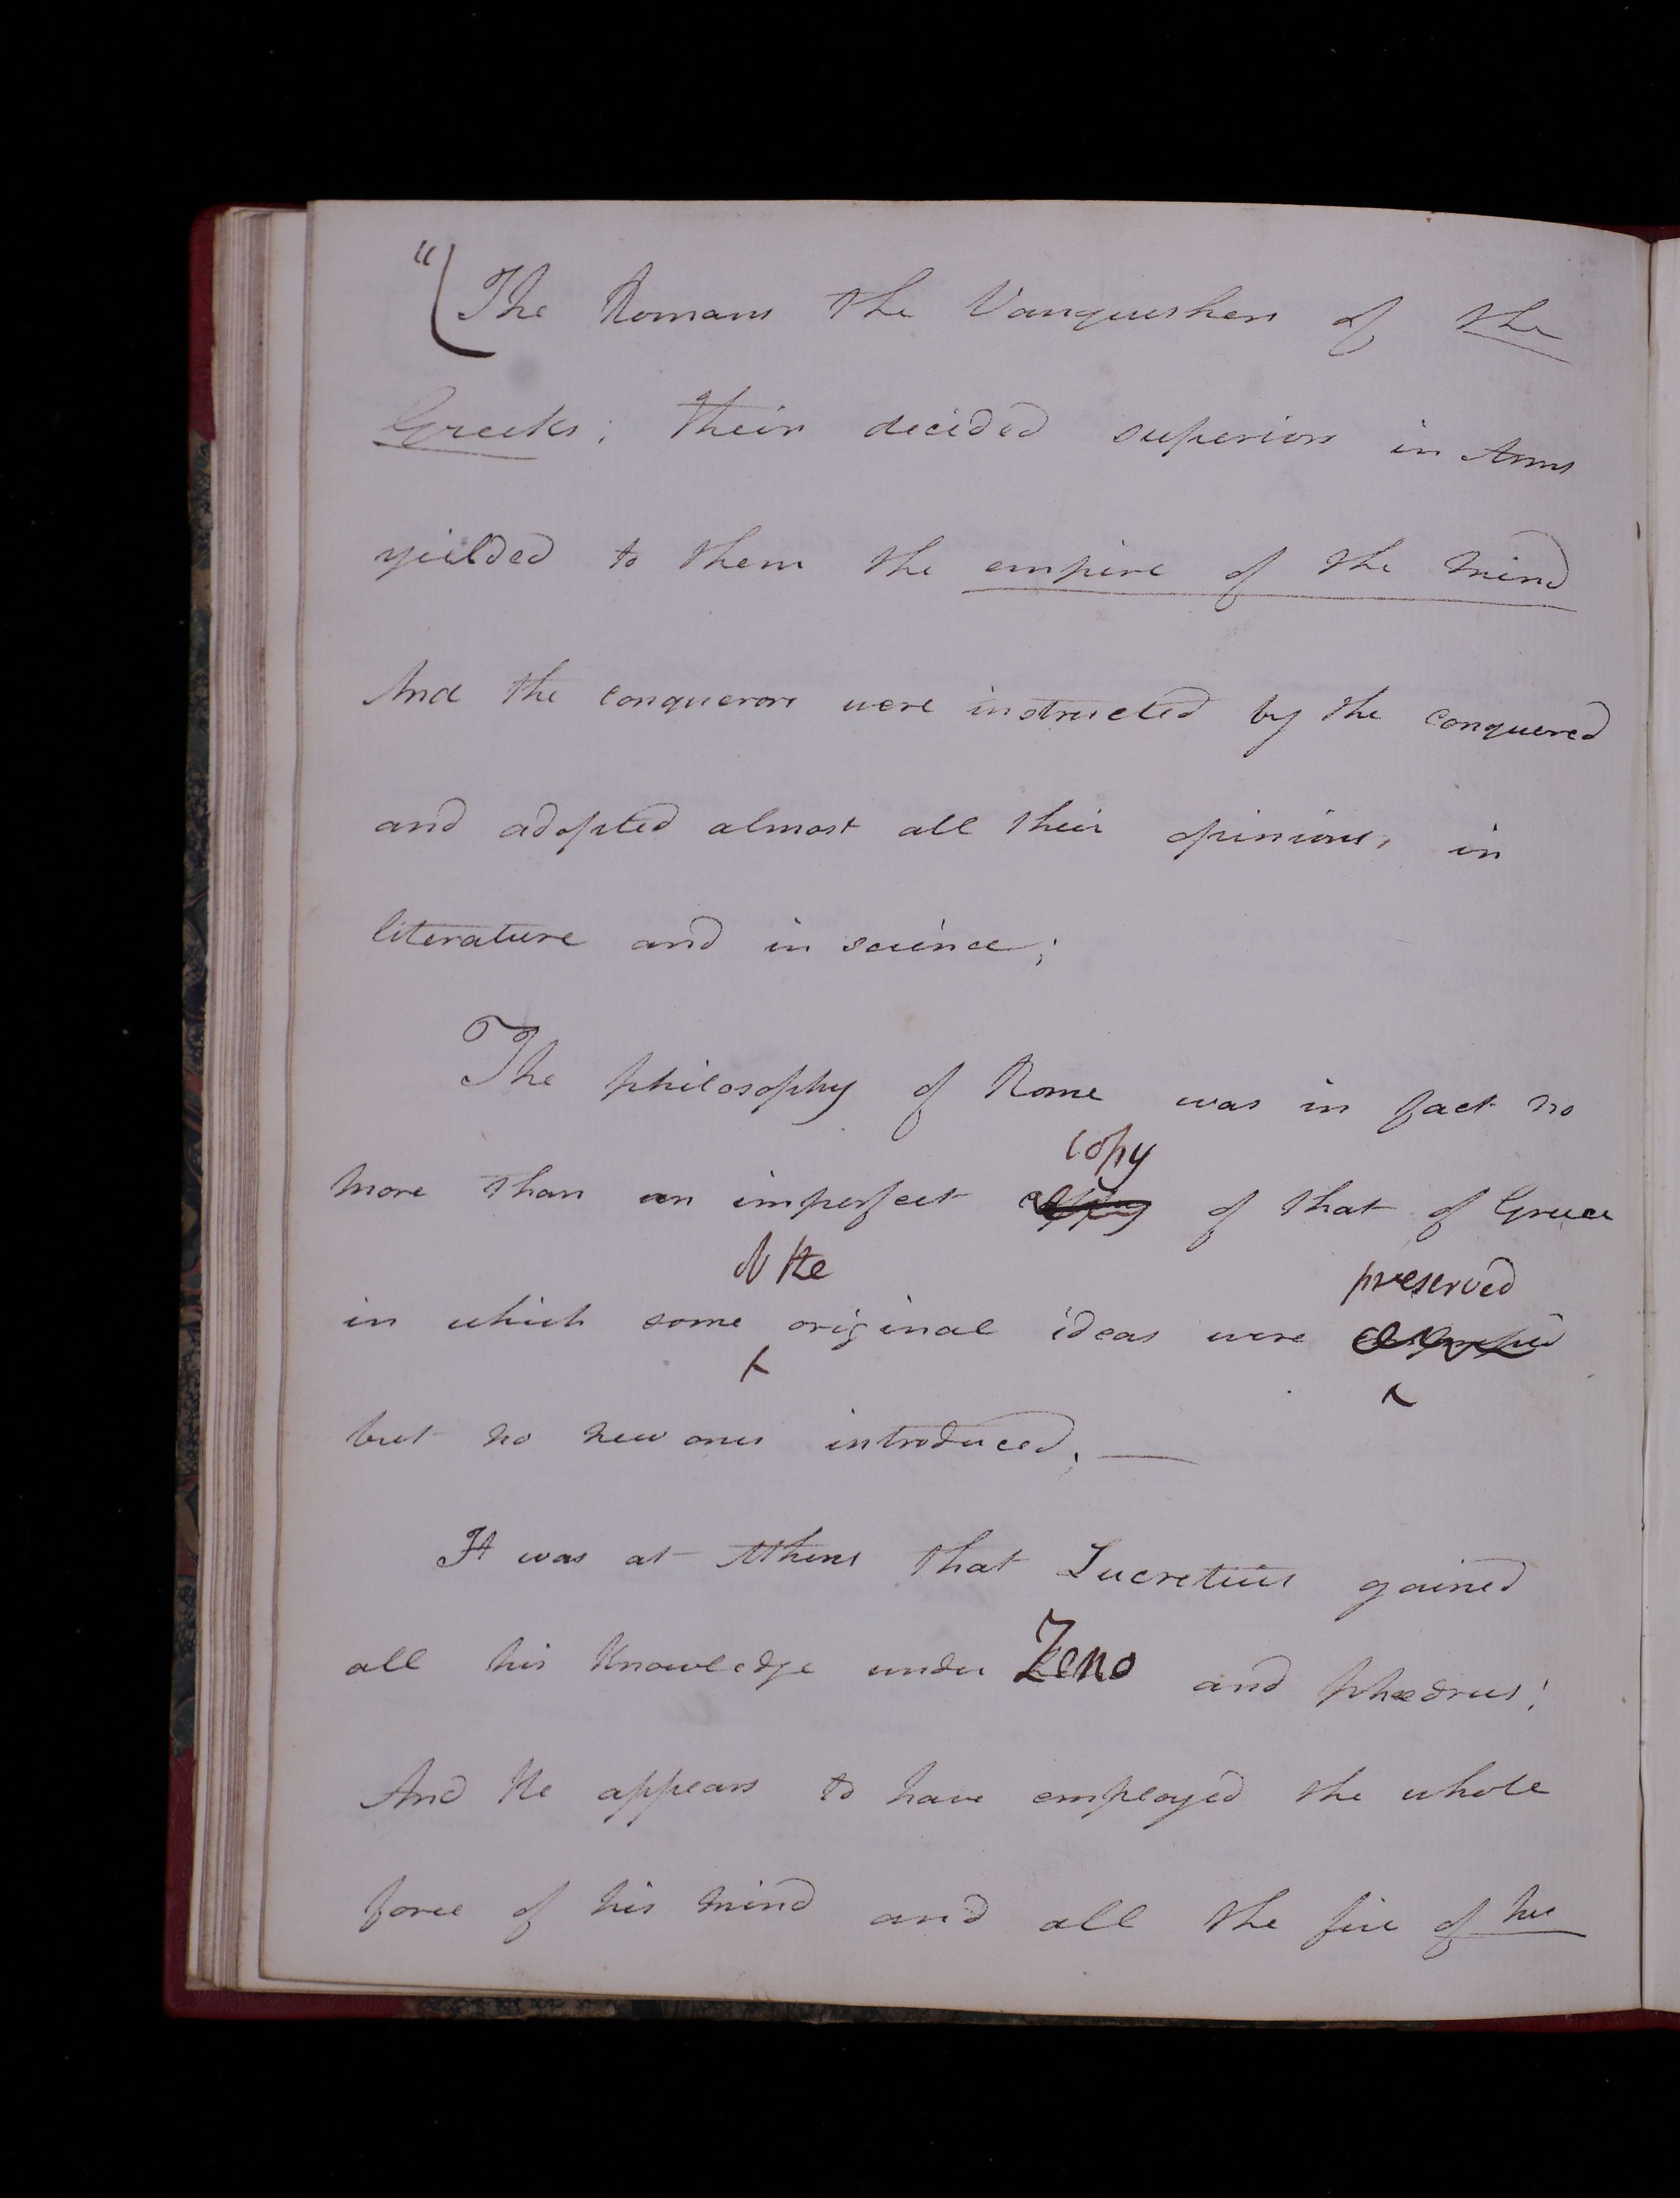 "The Romans the Vanquishers of the
Greeks; their decided superiors in Arms
yielded to them the empire of the mind
And the conquerors were instructed by the conquered
and adopted almost all their opinions, in
literature and in science;
The philosophy of Rome was in fact no
copy
more than an imperfect of that of Greece
of the preserved
in which some original ideas were
but no new ones introduced. —
It was at Athens that Lucretius gained
all his Knowledge under Zeno and phædrus;
And He appears to have employed the whole
force of his mind and all the fire of his